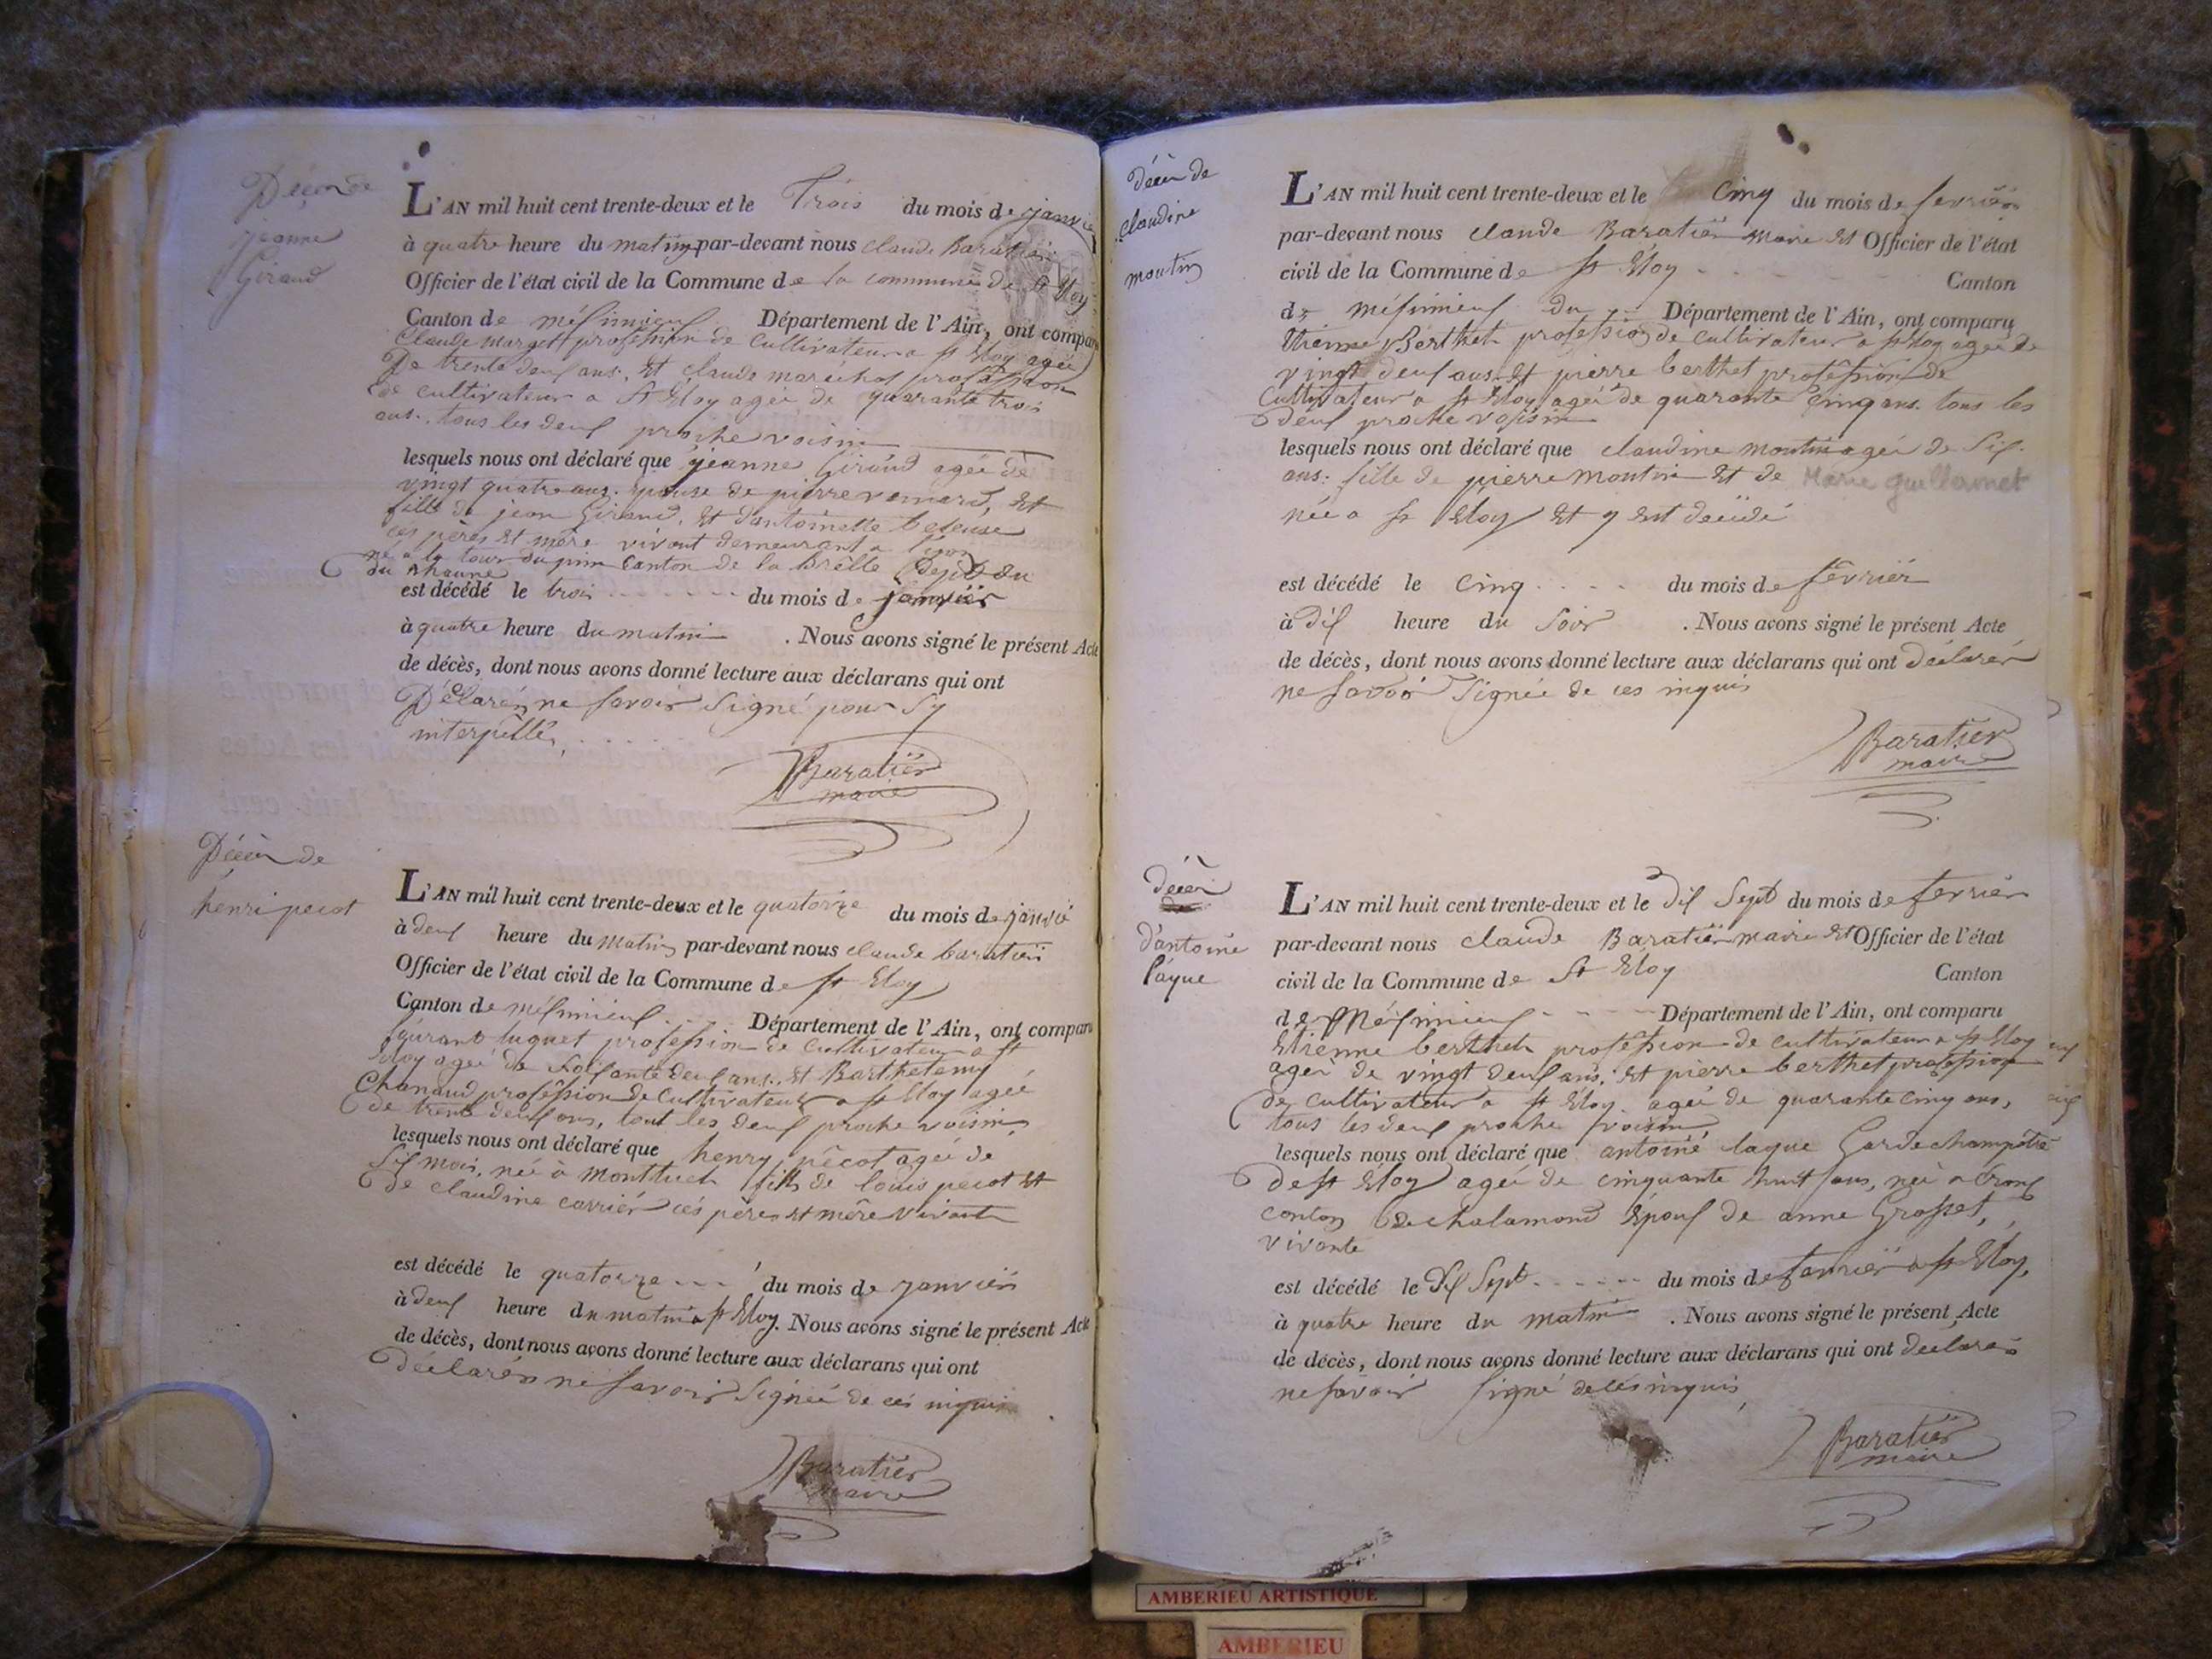 Décès de
jeanne
Giraud
L'AN mil huit cent trente-deux et le Trois du mois de janvier
à quatre heure du matin par-devant nous claude Baratier
Officier de l'état civil de la Commune de la commune de St Eloy
Canton de mésimieux Département de l'Ain, ont comparu
Claude profession de Cultivateur a St Eloy agée
De trente deux ans. Et claude maréchal profession
de cultivateur a St Eloy agée de quarante trois
ans. tous les deux proche voisin
lesquels nous ont déclaré que jeanne Giraud agée de
vingt quatre ans. Epouse de pierre Et
fille de jean Giraud, Et d'antoinette
ces pères Et mère vivant demeurant a
né a la tour du pin Canton de la
du Rhaune
est décédé le trois du mois de janvier
à quatre heure du matin . Nous avons signé le présent Acte
de décès, dont nous avons donné lecture aux déclarans qui ont
Déclarér ne savoir Signé pour Sy
interpellé
Baratier
maire
Décès de
henri pecot
L'AN mil huit cent trente-deux et le quatorze du mois de janvié
à deux heure du matin par-devant nous claude baratier
Officier de l'état civil de la Commune de St Eloy
Canton de mésimieux Département de l'Ain, ont comparu
luquet profession de Cultivateur a St
Eloy agée de Soisante deux ans. Et Barthelemy
Chanaud profession de Cultivateur a St Eloy agée
de trente deux ans, tout les deux proche voisin
lesquels nous ont déclaré que henry pêcot agée de
Six mois, née à Montluel fils de louis pecot Et
de claudine carriér cés pères Et mère vivante
est décédé le quatorze du mois de janvier
à deux heure du matin a St Eloy. Nous avons signé le présent Acte
de décès, dont nous avons donné lecture aux déclarans qui ont
déclarér ne savoir Signée de cés inquis
Baratier
maire
décès de
claudine
moutin
L'AN mil huit cent trente-deux et le Cinq du mois de fevrier
par-devant nous claude Baratier Maire Et Officier de l'état
civil de la Commune de St Eloy Canton
de mésimieux du Département de l'Ain, ont comparu
Etienne Berthet profession de cultivateur a St Eloy agée de
vingt deux ans. Et pierre berthet profession de
Cultivateur a St Eloy agée de quarante Cinq ans. tous les
deux proche voisin
lesquels nous ont déclaré que claudine moutin agée de Six
ans: fille de pierre moutin Et de Marie guillermet
née a St Eloy Et y est décédé
est décédé le Cinq du mois de fevrier
à dix heure du Soir . Nous avons signé le présent Acte
de décès, dont nous avons donné lecture aux déclarans qui ont déclarér
ne savoir Signée de ces inquis
Baratier
maire
décès
de
d'antoine
láque
L'AN mil huit cent trente-deux et le dix Sept du mois de fevrier
par-devant nous claude Baratier maire Et Officier de l'état
civil de la Commune de St Eloy Canton
de Mésimieux Département de l'Ain, ont comparu
Etienne berthet profession de cultivateur a St Eloy
agée de vingt deux ans. Et pierre berthet profession
de cultivateur a St Eloy agée de quarante Cinq ans,
tous les deux proche voisin
lesquels nous ont déclaré que antoine laque Garde champêtre
de St Eloy agée de cinquante huit ans, née a Crans
conton de chalamond Epoux de anne Grosset,
vivante
est décédé le dix Sept du mois de favrier a St Eloy,
à quatre heure du matin . Nous avons signé le présent Acte
de décès, dont nous avons donné lecture aux déclarans qui ont déclarér
ne savoir signé de cés inquis
Baratier
maire
AMBERIEU ARTISTIQUE
AMBERIEU